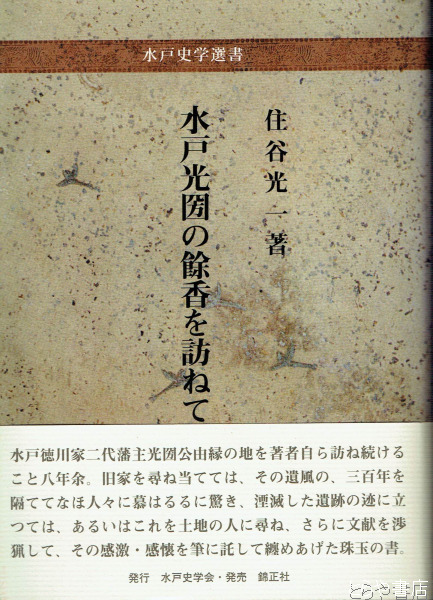 水戸史学選書
住谷光一著
水戸光圀の餘香を訪ねて
水戸徳川家二代藩主光圀公由縁の地を著者自ら訪ね続ける
こと八年余。旧家を尋ね当てては、その遺風の、三百年を
隔ててなほ人々に慕はるるに驚き、湮滅した遺跡の迹に立
つては、あるいはこれを土地の人に尋ね、さらに文献を渉
猟して、その感激・感懐を筆に託して纏めあげた珠玉の書。
発行 水戸史学会・発売 錦正社
とらや書店